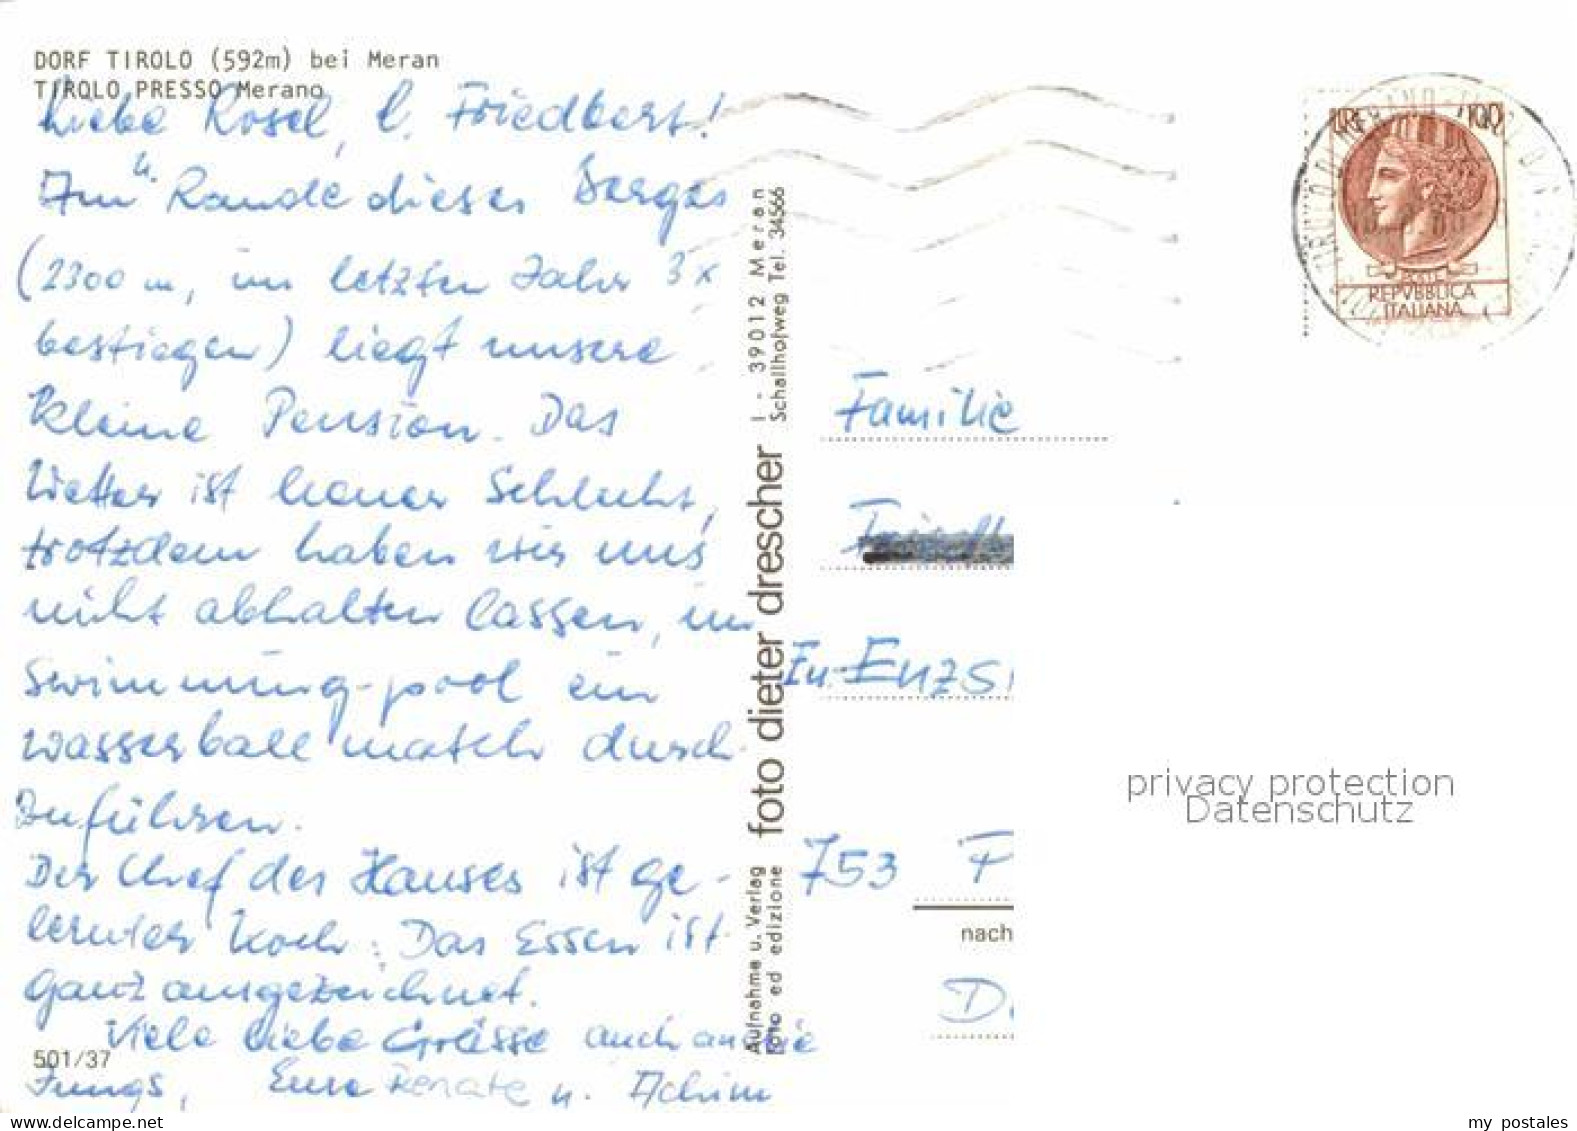 DORF TIROLO (592m) bei Meran
TIROLO PRESSO Merano
Liebe Rosel, l. Friedbert!
Am u. Rande dieses Berges
(2300 m, im letzten Jahr 3x
bestiegen) liegt unsere
kleine Pension. Das
Wetter ist heuer schlecht,
trotzdem haben wir uns
nicht abhalten lassen, im
Swimming-pool ein
Wasserballmatch durch-
zuführen.
Der Chef des Hauses ist ge-
lernter Koch: Das Essen ist
ganz ausgezeichnet.
Viele liebe Grüsse auch an die
Jungs, Eure Renate u. Achim
501/37
Aufnahme u. Verlag
foto ed edizione
foto dieter drescher
I - 39012 Meran
Schallhofweg Tel. 34566
100
REPVBBLICA
ITALIANA
Familie
753 F
nach
D
privacy protection
Datenschutz
my postales